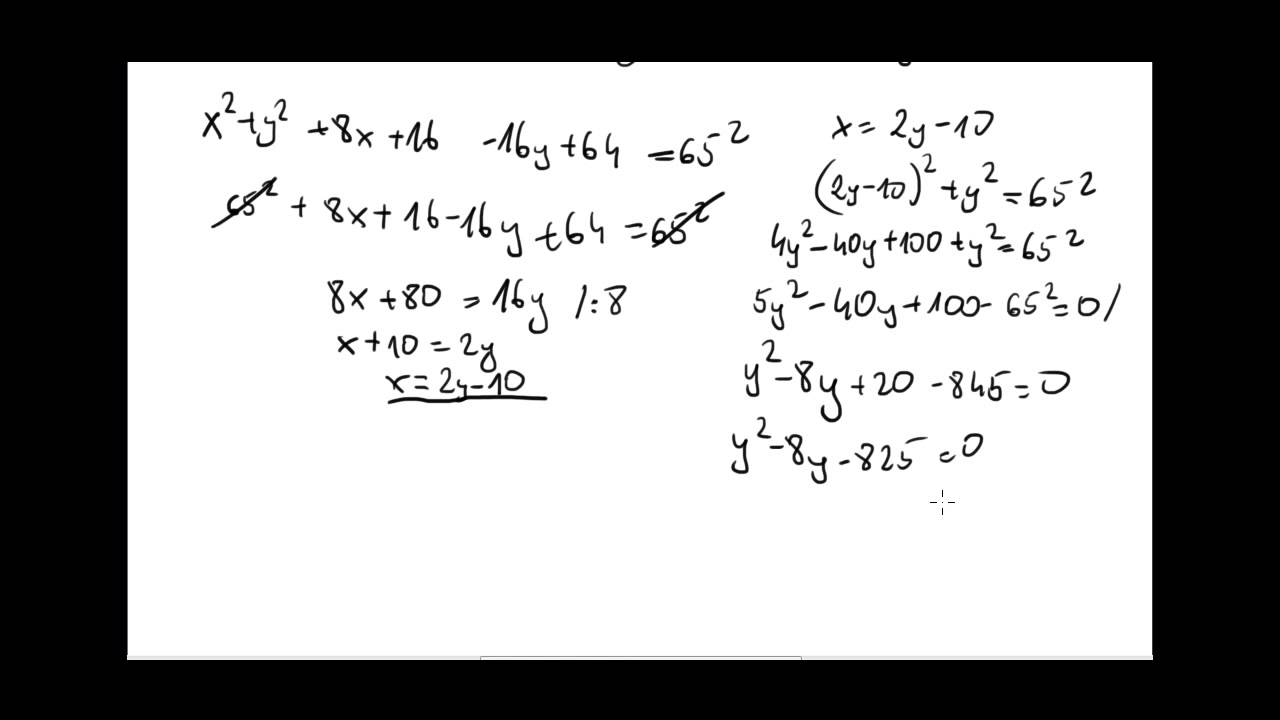 x²+y² +8x+16 -16y+64 =65²
65² + 8x+16-16y+64 =65²
8x+80 = 16y /:8
x+10=2y
x=2y-10
x= 2y-10
(2y-10)²+y²=65²
4y²-40y+100+y²=65²
5y²-40y+100-65²=0/
y²-8y+20-845=0
y²-8y-825=0